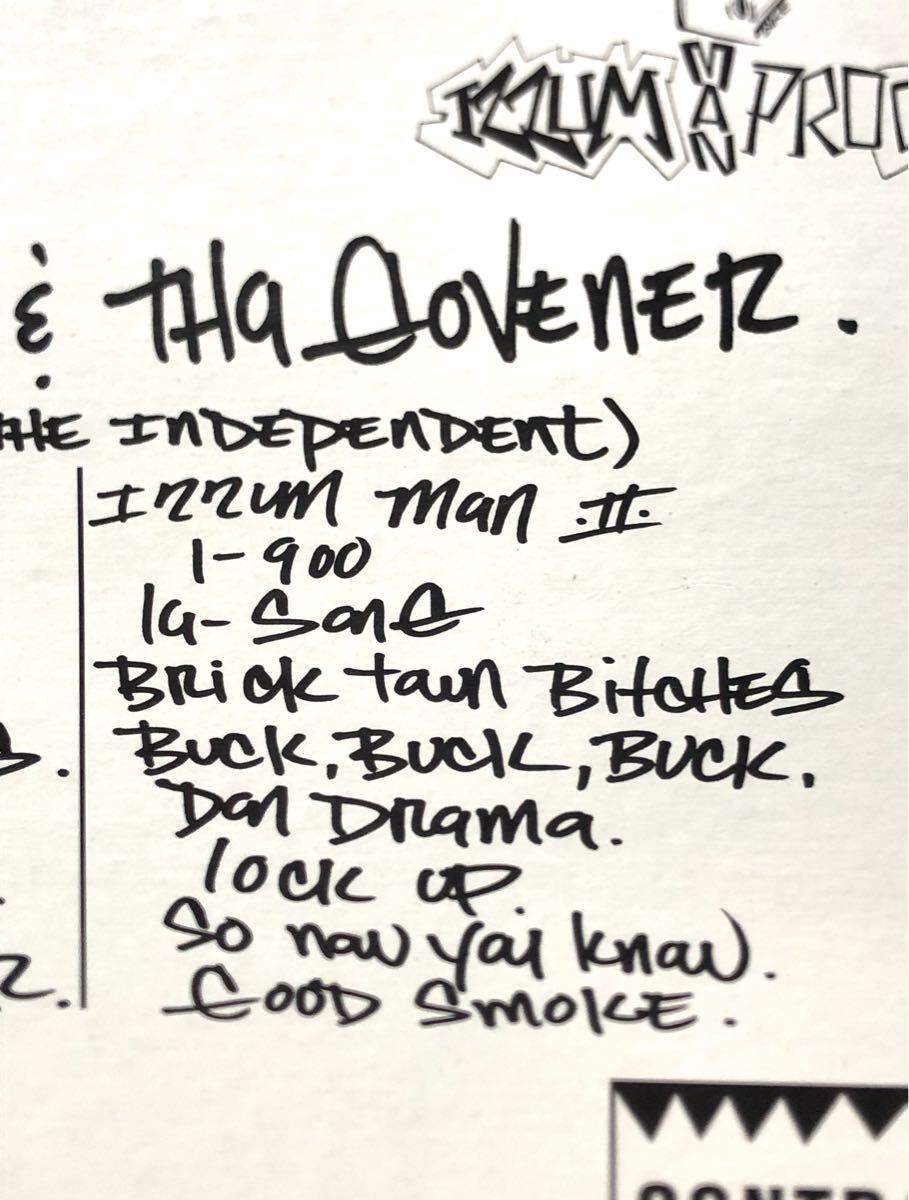 IZZUM MAN PROD
& THA GOVENER.
THE INDEPENDENT)
IZZUM MAN II
1-900
Ia-SONG
BRick town BitCHES
BUCK, BUCK, BUCK.
Don DRama.
lock up
So now you know.
GOOD SMOKE.